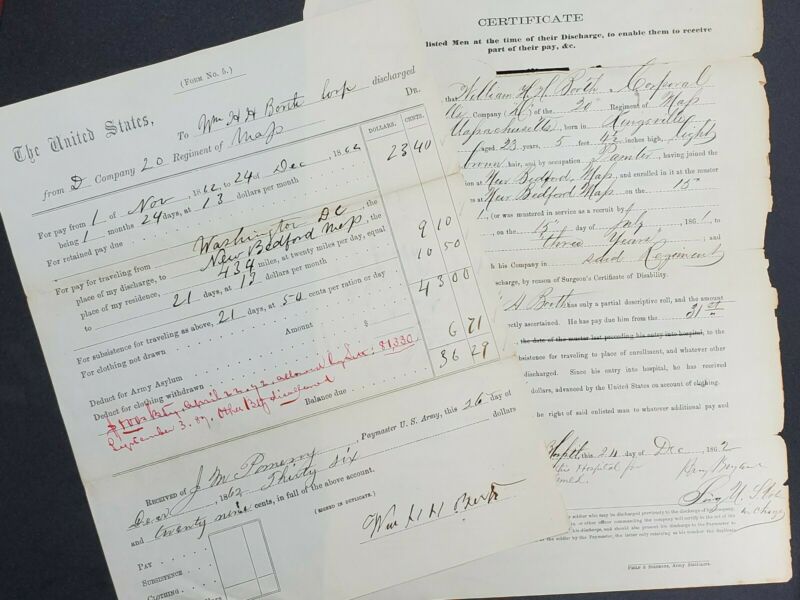 (FORM No. 5.)
The United States,
To Wm H H Borth Corp discharged
from D Company 20 Regiment of Mass Dr.
DOLLARS. CENTS.
For pay from 1 of Nov, 1862, to 24 of Dec, 1862
being 1 months 24 days, at 13 dollars per month 23 40
For retained pay due
For pay for traveling from Washington DC the
place of my discharge, to New Bedford Mass, the
place of my residence, 434 miles, at twenty miles per day, equal
to 21 days, at 13 dollars per month 9 10
For subsistence for traveling as above, 21 days, at 50 cents per ration or day 10 50
For clothing not drawn
Amount $ 43 00
Deduct for Army Asylum
Deduct for clothing withdrawn 6 71
Balance due 36 29
$100 Bty, April 22, 72, allowed by Sett. 81,330.
September 3. 87. Other Bty disallowed
RECEIVED OF J M Pomeroy, Paymaster U. S. Army, this 26 day of
Decr, 1862 Thirty Six dollars
and twenty nine cents, in full of the above account.
(SIGNED IN DUPLICATE.)
Wm H H Borth
PAY
SUBSISTENCE
CLOTHING
CERTIFICATE
listed Men at the time of their Discharge, to enable them to receive
part of their pay, &c.
that William H. H. Borth a Corporal
Company (D) of the 20th Regiment of Mass
Massachusetts, born in
aged 23 years, 5 feet inches high, light
brown hair, and by occupation Painter, having joined the
on at New Bedford Mass, and enrolled in it at the muster
at New Bedford Mass. on the 15
(or was mustered in service as a recruit by
, on the 15 day of July, 1861, to
three Years, and
h his Company in said Regiment
scharge, by reason of Surgeon's Certificate of Disability.
H Borth has only a partial descriptive roll, and the amount
ctly ascertained. He has pay due him from the 31st
, the date of the muster last preceding his entry into hospital, to the
bsistence for traveling to place of enrollment, and whatever other
discharged. Since his entry into hospital, he has received
dollars, advanced by the United States on account of clothing.
be right of said enlisted man to whatever additional pay and
Hospital this 24 day of Dec, 1862
his Hospital for
Surg U. S. Vol
in Charge
FIELD & SOMERS, Army Stationers.